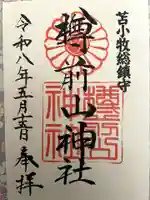 苫小牧総鎮守
樽前山神社
樽前
神社
令和八年五月吉日 奉拝